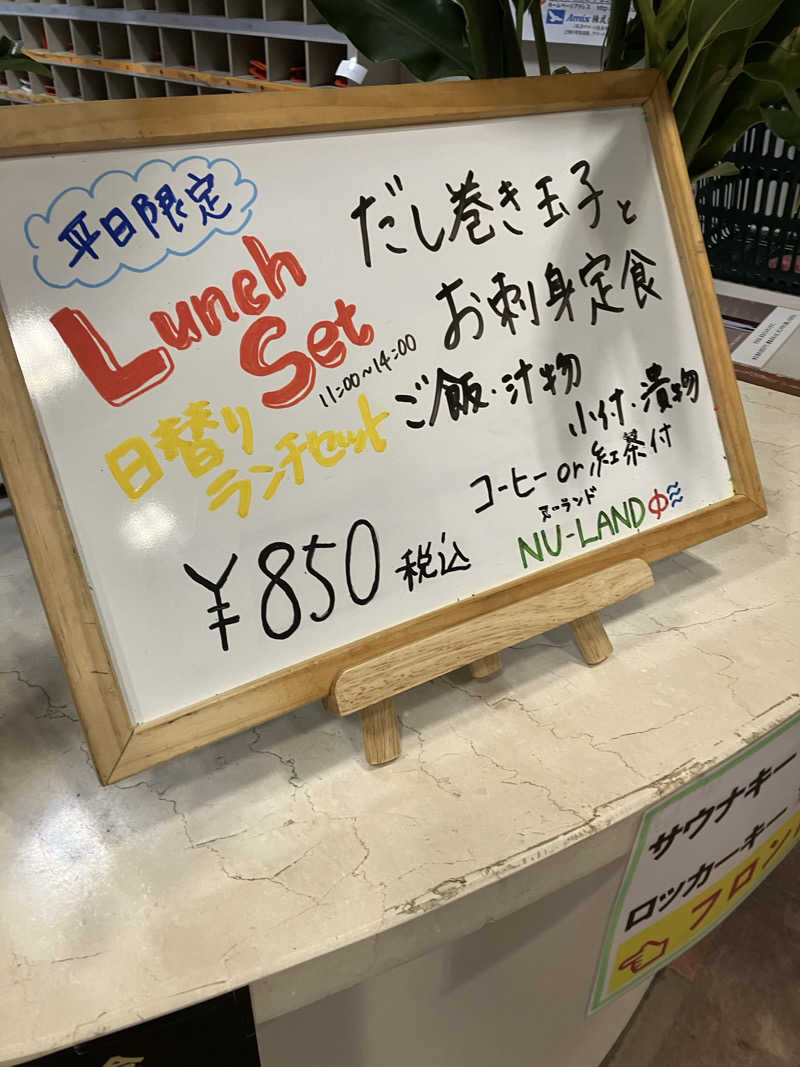 平日限定
Lunch
Set
11:00~14:00
日替り
ランチセット
¥850 税込
だし巻き玉子と
お刺身定食
ご飯・汁物
小付・漬物
コーヒー or 紅茶付
ヌーランド
NU-LAND
サウナキー
ロッカーキー
フロン
ホームページアドレス
Amix 株式